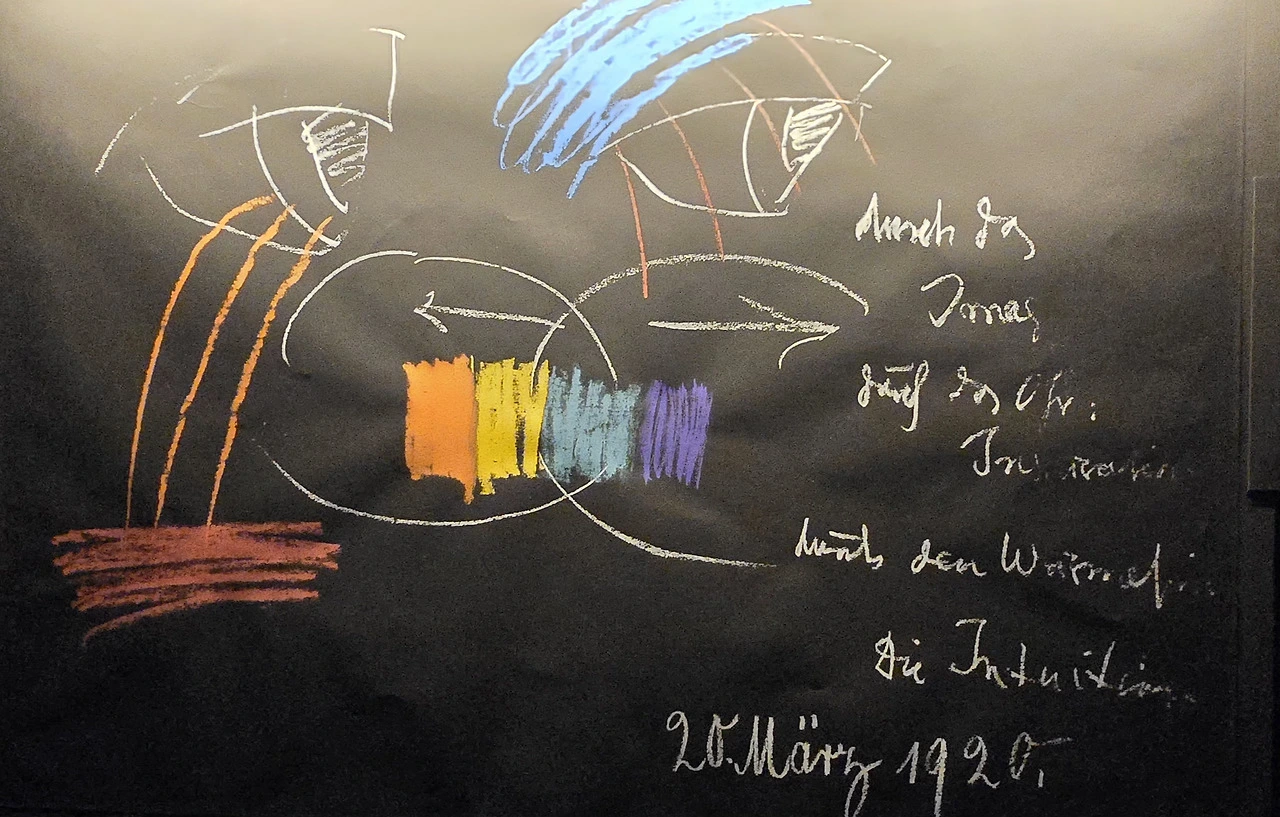 durch das
Imag
durch das Ohr:
In
durch den Wärmesin
Die Intuition
20. März 1920.